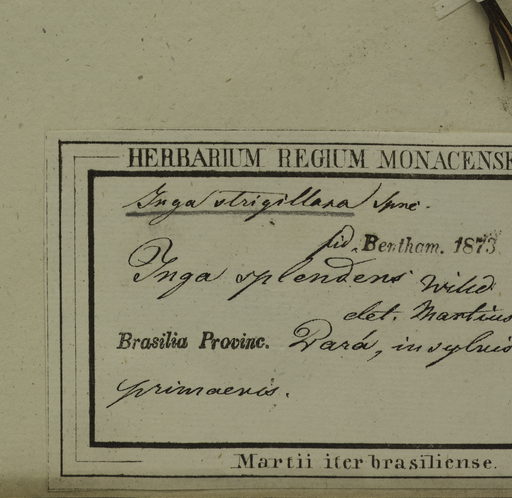 HERBARIUM REGIUM MONACENSE
Inga strigillosa Spce.
fid. Bentham. 1873
Inga splendens Willd.
det. Martius
Brasilia Provinc. Pará, in sylvis
primaevis.
Martii iter brasiliense.